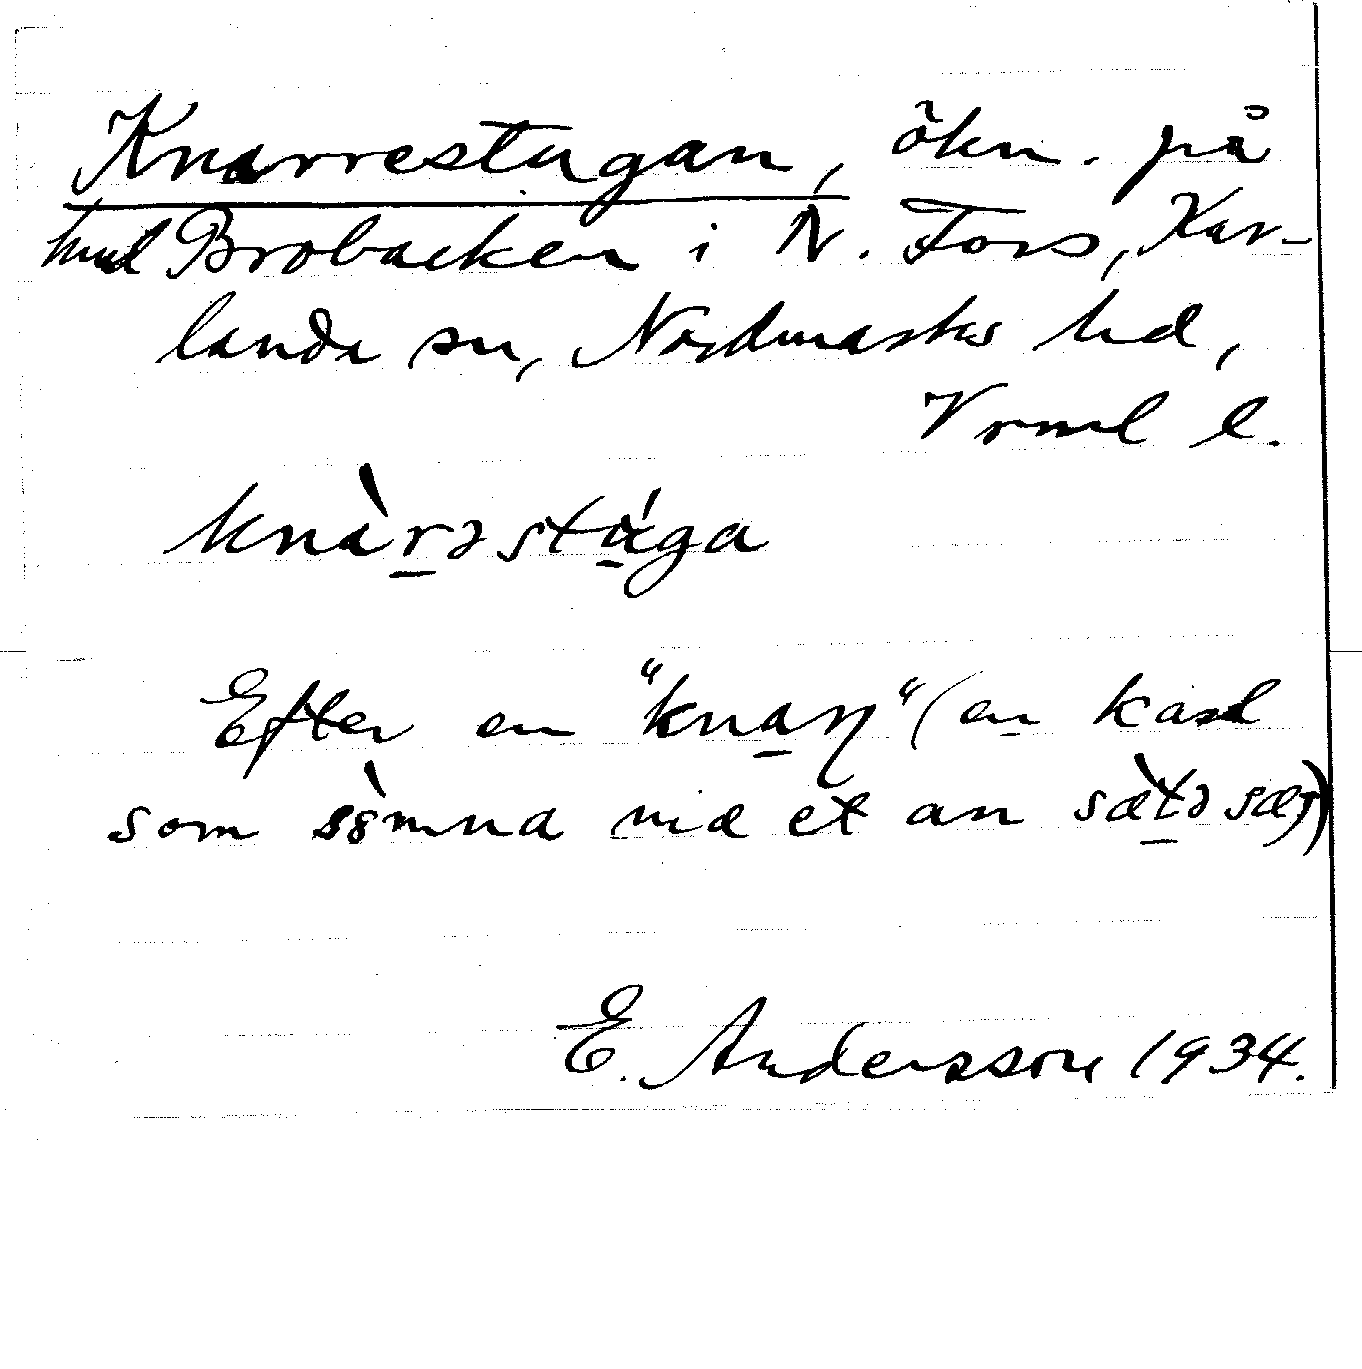 Knarrestugan, ökn. på
hmd Brobacken i N. Fors, Kar-
landa sn, Nordmarks hd,
Vrml l.
knàrəstúga
Efter en "knaŋ" (en kasl
som sòmna me et an sætə sæŋ)
E. Andersson 1934.